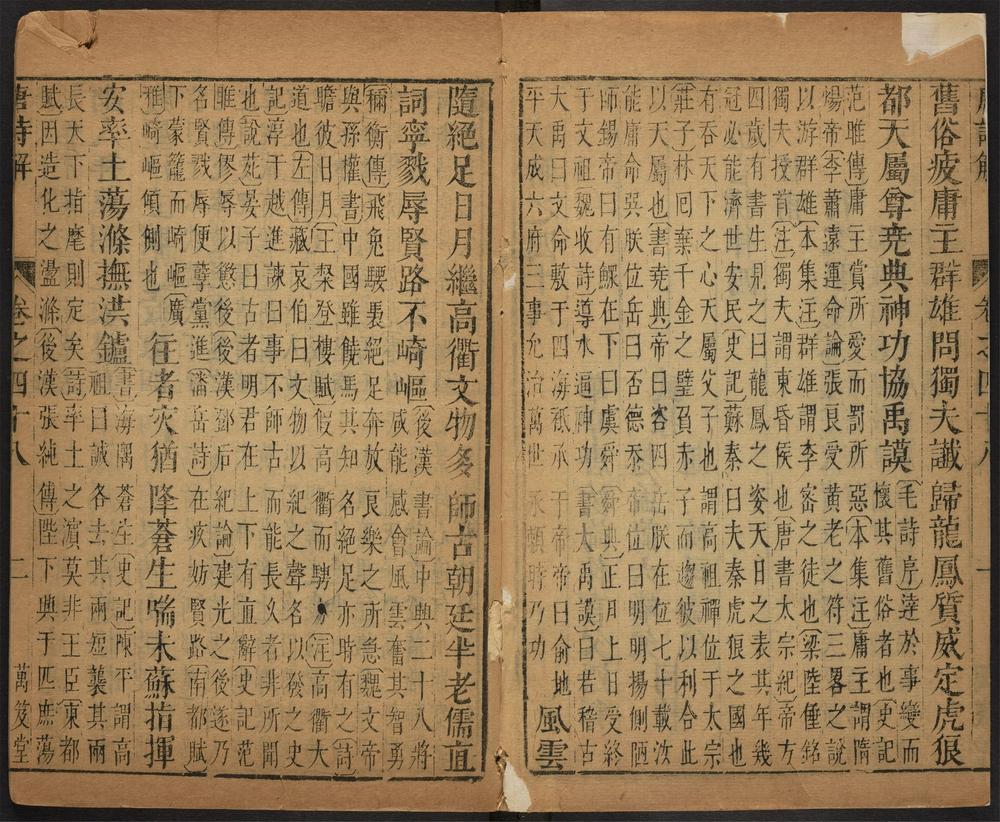 唐詩解 卷之四十八
舊俗疲庸主群雄問獨夫讖歸龍鳳質威定虎狼
都天屬尊堯典神功協禹謨
毛詩序達於事變而
懷其舊俗者也史記
范雎傳庸主賞所愛而罰所惡本集注庸主謂隋
煬帝李蕭遠運命論張良受黃老之符三畧之說
以游群雄本集注群雄謂李密之徒也梁陸倕銘
獨夫授首注獨夫謂東昏侯也唐書太宗紀帝方
四歲有書生見之曰龍鳳之姿天日之表其年幾
冠必能濟世安民史記蘇秦曰夫秦虎狼之國也
有吞天下之心天屬父子也謂高祖禪位于太宗
莊子林回棄千金之璧負赤子而趨彼以利合此
以天屬也書堯典帝曰咨四岳朕在位七十載汝
能庸命巽朕位岳曰否德忝帝位曰明明揚側陋
師錫帝曰有鰥在下曰虞舜舜典正月上日受終
于文祖魏收詩導水逼神功書大禹謨曰若稽古
大禹曰文命敷于四海祗承于帝帝曰俞地
平天成六府三事允治萬世永賴時乃功
風雲
隨絕足日月繼高衢文物多師古朝廷半老儒直
詞寧戮辱賢路不崎嶇
後漢書論中興二十八將
咸能感會風雲奮其智勇
禰衡傳飛兔騕褭絕足奔放良樂之所急魏文帝
與孫權書中國雖饒馬其知名絕足亦時有之詩
瞻彼日月王粲登樓賦假高衢而騁注高衢大
道也左傳臧哀伯曰文物以紀之聲名以發之史
記淳于越進諫曰事不師古而能長久者非所聞
也說苑晏子曰古者明君在上下有直辭史記范
雎傳僇辱以懲後後漢鄧后紀論建光之後遂乃
名賢戮辱便孽黨進潘岳詩在疚妨賢路南都賦
下蒙籠而崎嶇廣
雅崎嶇傾側也
往者災猶降蒼生喘未蘇指揮
安率土蕩滌撫洪鑪
書海隅蒼生史記陳平謂高
祖曰誠各去其兩短襲其兩
長天下指麾則定矣詩率土之濱莫非王臣東都
賦因造化之盪滌後漢張純傳陛下興于匹庶蕩
唐詩解 卷之四十八 二 萬笈堂